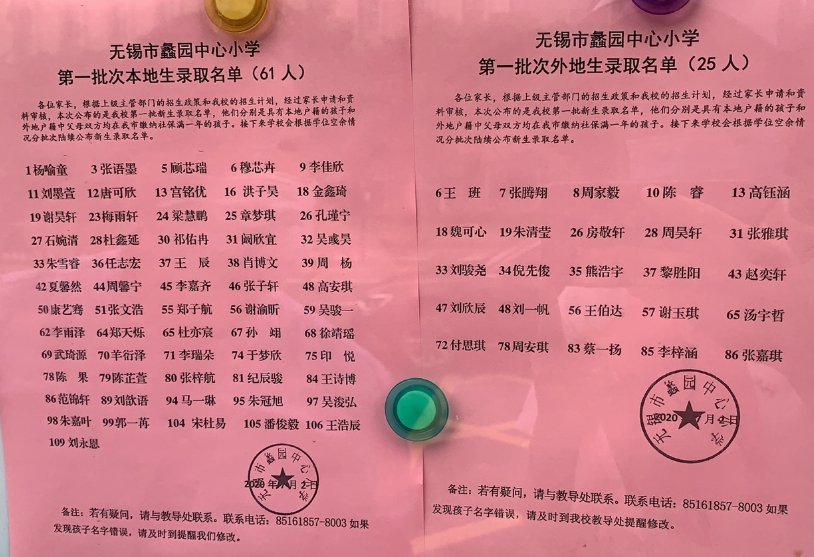 无锡市蠡园中心小学
第一批次本地生录取名单（61人）
各位家长，根据上级主管部门的招生政策和我校的招生计划，经过家长申请和资
料审核，本次公布的是我校第一批新生录取名单，他们分别是具有本地户籍的孩子和
外地户籍中父母双方均在我市缴纳社保满一年的孩子。接下来学校会根据学位空余情
况分批次陆续公布新生录取名单。
1杨喻童 3张语墨 5顾芯瑞 6穆芯冉 9李佳欣
11刘墨萱 12唐可欣 13宫铭优 16 洪子昊 18金鑫琦
19谢昊轩 23梅雨轩 24梁慧鹏 25章梦琪 26孔瑾宁
27石婉清 28杜鑫延 30祁佑冉 31阚欣宜 32吴彧昊
33朱雪睿 36任志宏 37王 辰 38肖博文 39周 杨
42夏馨然 44周馨宁 45李嘉齐 46张子轩 48高安琪
50康艺骞 51张文浩 55郑子航 56谢渝昕 59吴骏一
62李雨泽 64郑天烁 65杜亦宸 67孙 翊 68徐靖瑶
69武琦源 70羊衍泽 71李瑞朵 74于梦欣 75印 悦
78陈 果 79陈芷萱 80张梓航 81纪辰骏 84王诗博
86范锦轩 89刘歆语 94马一琳 95朱冠旭 97吴浚弘
98朱嘉叶 99郭一苒 104 宋杜易 105潘俊毅 106王浩辰
109刘永恩
无锡市蠡园中心小学
2020年7月2日
备注：若有疑问，请与教导处联系。联系电话：85161857-8003如果
发现孩子名字错误，请及时到提醒我们修改。
无锡市蠡园中心小学
第一批次外地生录取名单（25人）
各位家长，根据上级主管部门的招生政策和我校的招生计划，经过家长申请和资
料审核，本次公布的是我校第一批新生录取名单，他们分别是具有本地户籍的孩子和
外地户籍中父母双方均在我市缴纳社保满一年的孩子。接下来学校会根据学位空余情
况分批次陆续公布新生录取名单。
6王 班 7张腾翔 8周家毅 10陈 睿 13高钰涵
18魏可心 19朱清莹 26房敬轩 28周昊轩 31张雅琪
33刘骏尧 34倪先俊 35熊浩宇 37黎胜阳 43赵奕轩
47刘欣辰 48刘一帆 56王伯达 57谢玉琪 65汤宇哲
72付思琪 78周安琪 83蔡一扬 85李梓涵 86张嘉琪
无锡市蠡园中心小学
2020年7月2日
备注：若有疑问，请与教导处联系。联系电话：85161857-8003如果
发现孩子名字错误，请及时到我校教导处提醒修改。